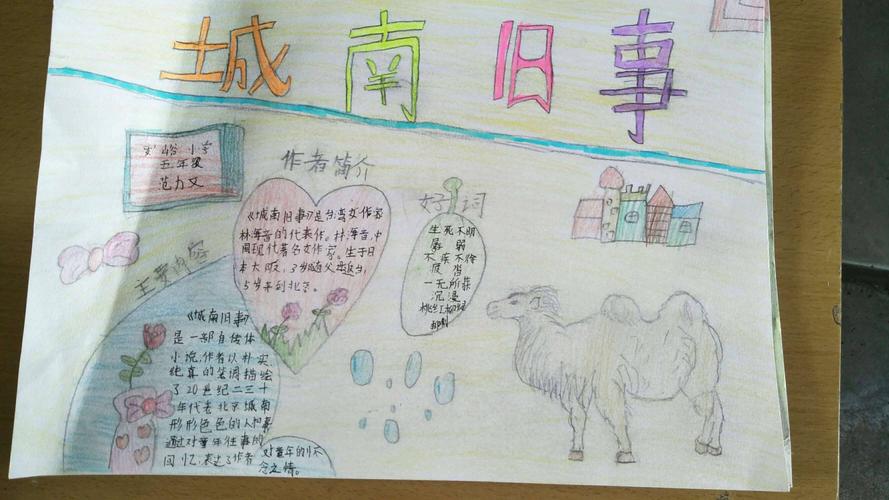 城南旧事
小学
五年级
范力文
作者简介
《城南旧事》是台湾女作家
林海音的代表作。林海音,中
国现代著名女作家。生于日
本大阪,3岁随父母返台,
5岁来到北京。
好词
生死不明
孱弱
不疾不徐
俊凿
一无所获
沉浸
桃红柳绿
主要内容
《城南旧事》
是一部自传体
小说,作者以朴实、
纯真的笔调描绘
了20世纪二三十
年代老北京城南
形形色色的人和事
通过对童年往事的
回忆,表达了作者
对童年的怀
念之情。